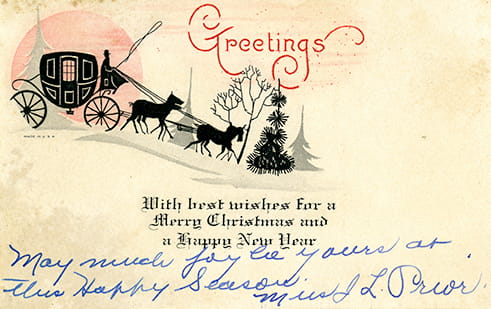 Greetings
MADE IN U.S.A.
With best wishes for a
Merry Christmas and
a Happy New Year
May much joy be yours at
this Happy Season.
Miss J L. Prior.